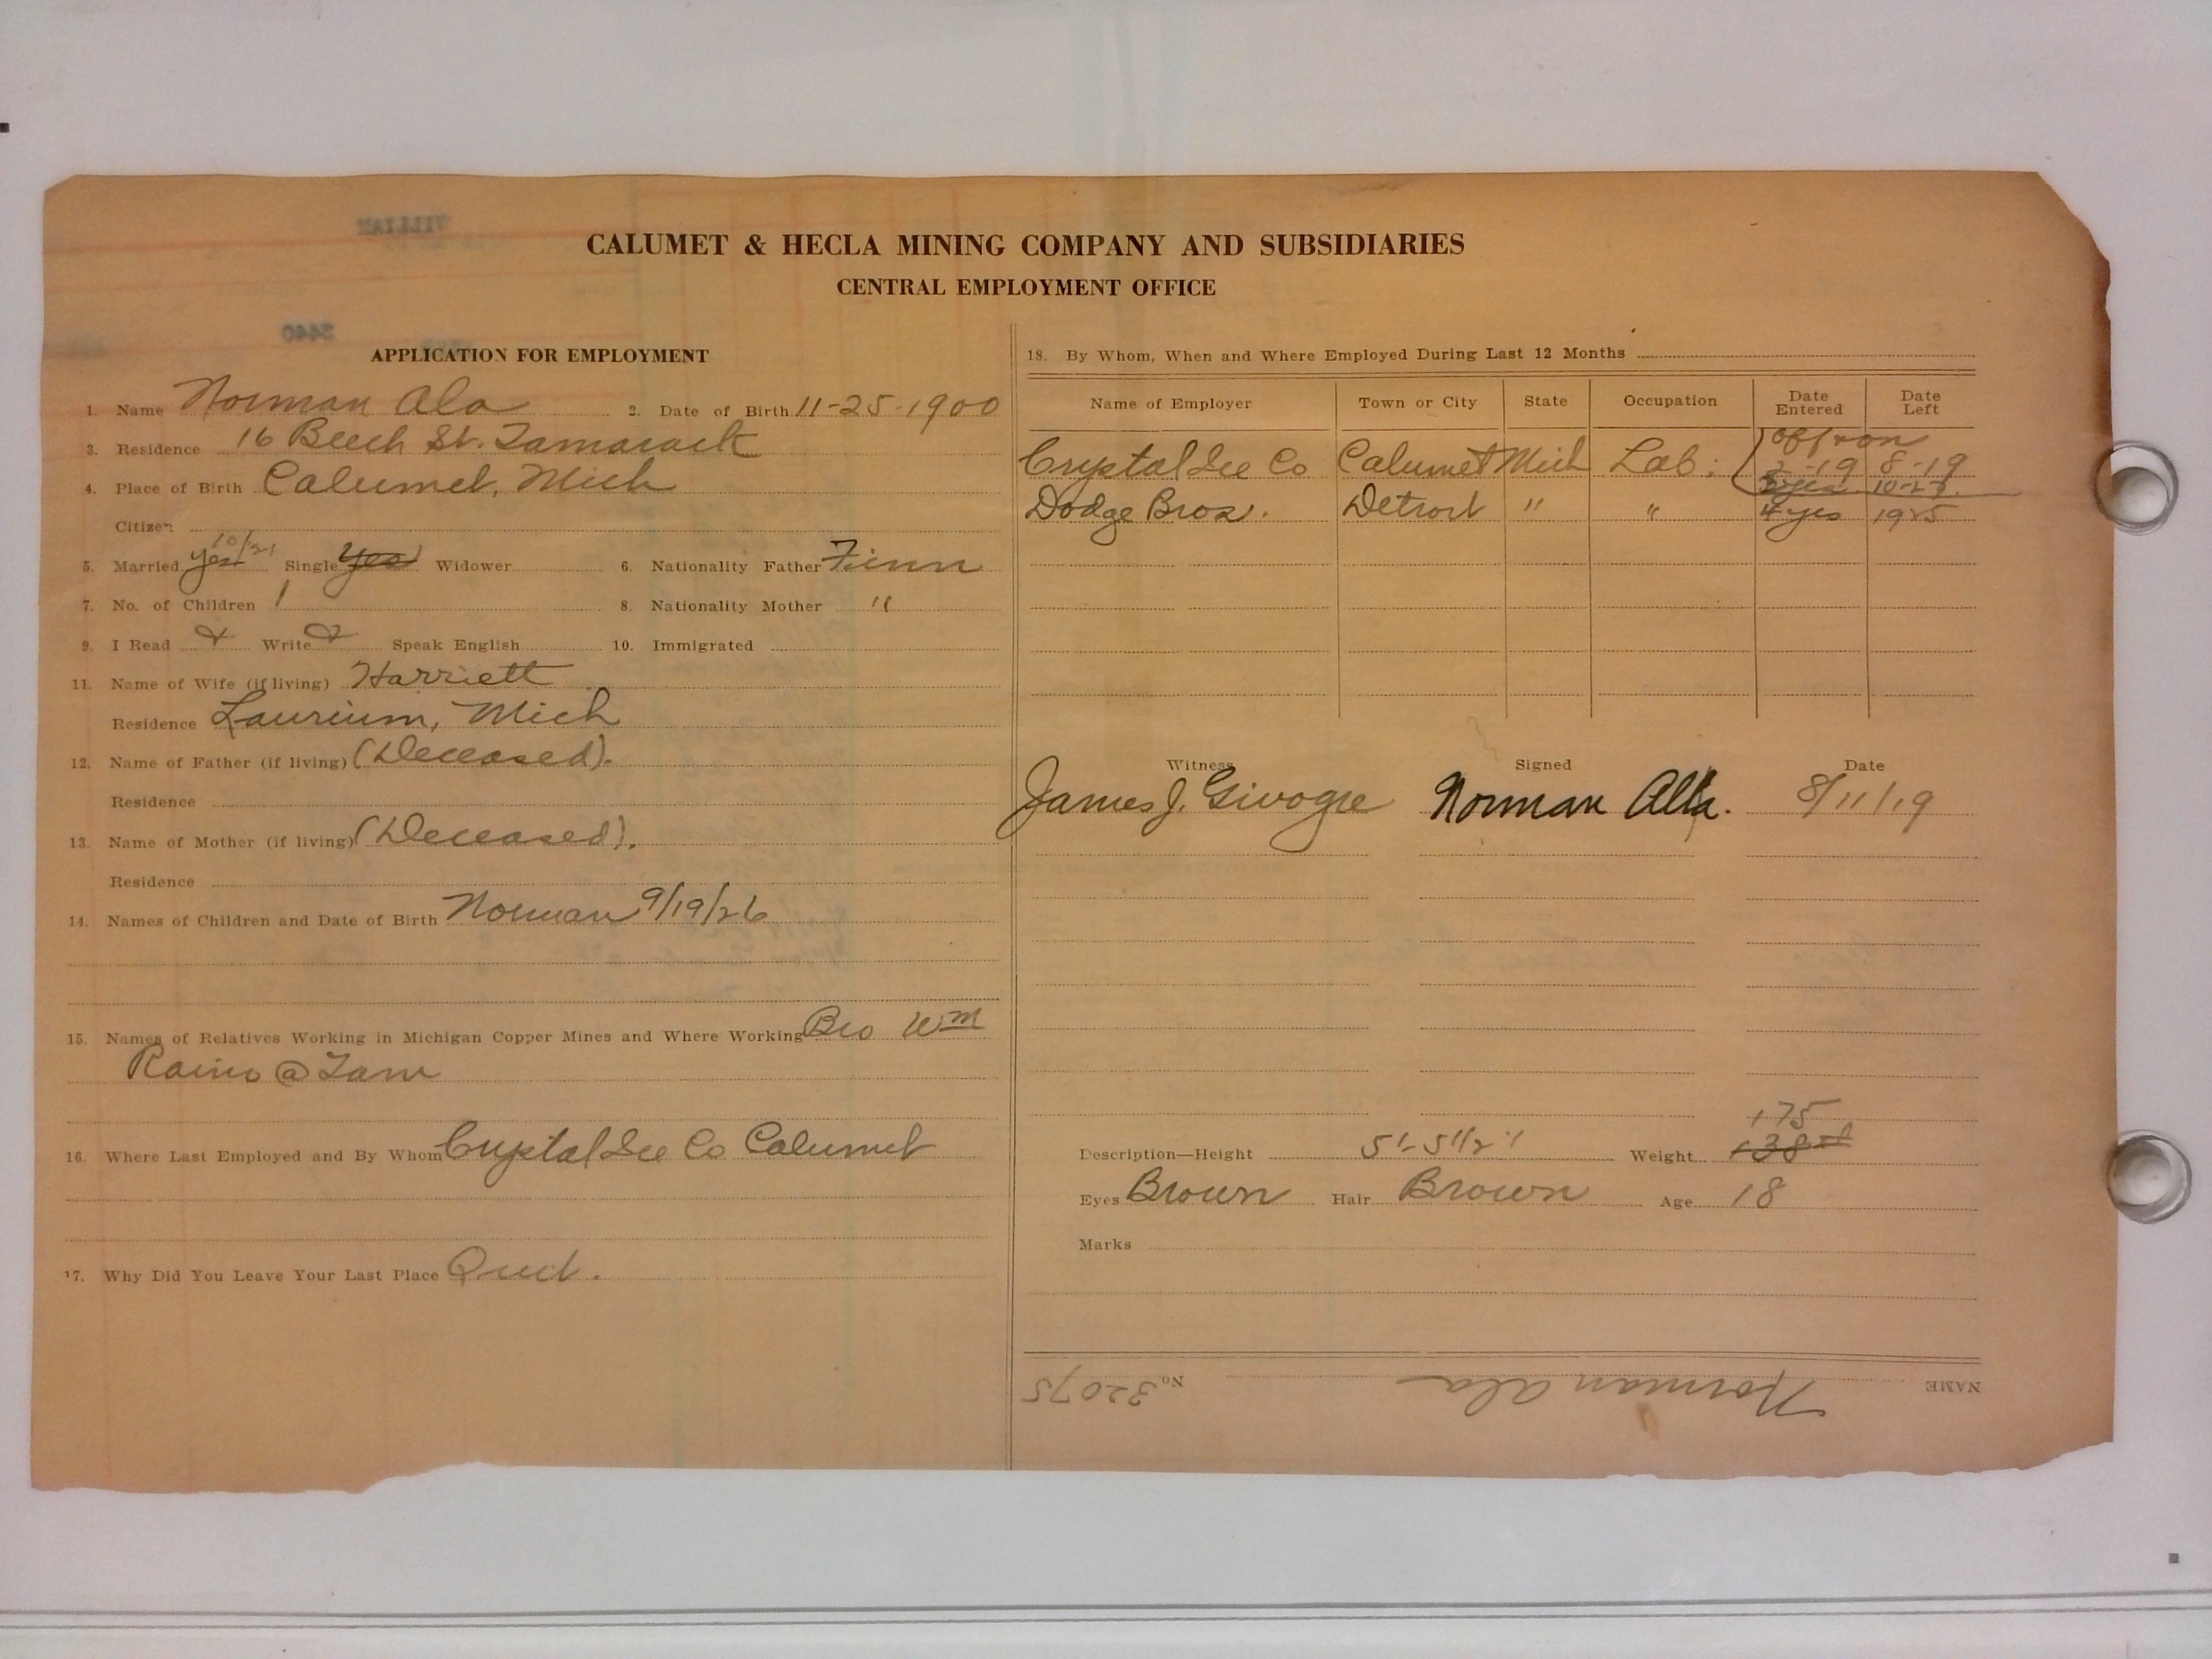 CALUMET & HECLA MINING COMPANY AND SUBSIDIARIES
CENTRAL EMPLOYMENT OFFICE
APPLICATION FOR EMPLOYMENT
1. Name Norman Ala 2. Date of Birth 11-25-1900
3. Residence 16 Beech St. Tamarack
4. Place of Birth Calumet, Mich
Citizen
10/21
5. Married yes Single yes Widower
6. Nationality Father Finn
7. No. of Children 1
8. Nationality Mother "
9. I Read & Write & Speak English
10. Immigrated
11. Name of Wife (if living) Harriett
Residence Laurium, Mich
12. Name of Father (if living) (Deceased).
Residence
13. Name of Mother (if living) (Deceased).
Residence
14. Names of Children and Date of Birth Norman 9/19/26
15. Names of Relatives Working in Michigan Copper Mines and Where Working Bro Wm
Raino @ Tam
16. Where Last Employed and By Whom Crystal Ice Co Calumet
17. Why Did You Leave Your Last Place Quit.
18. By Whom, When and Where Employed During Last 12 Months
Name of Employer Town or City State Occupation Date Entered Date Left
off & on
Crystal Ice Co Calumet Mich Lab. 2-19 8-19
10-27
Dodge Bros. Detroit " " 4 yes 1925
Witness Signed Date
James J. Givogre Norman Alla. 8/11/19
175
Description—Height 5'- 5 1/2" Weight 138#
Eyes Brown Hair Brown Age 18
Marks
NAME Norman Ala No. 32075
WILLIAM
3440